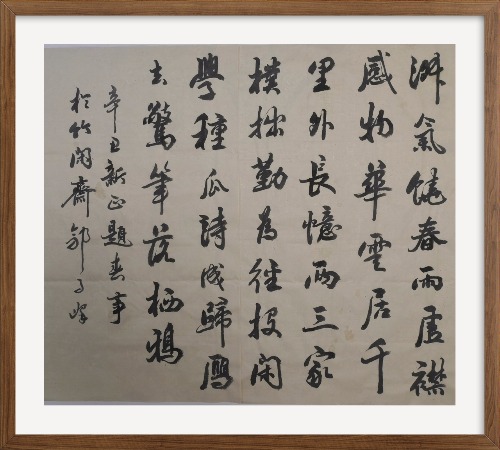 淑氣饒春雨虛襟
感物華雲居千
里外長憶兩三家
樸拙勤為徑投閑
學種瓜詩成歸鴈
去驚筆落栖鴉
辛丑新正題春事
於竹閑齋郭子峰